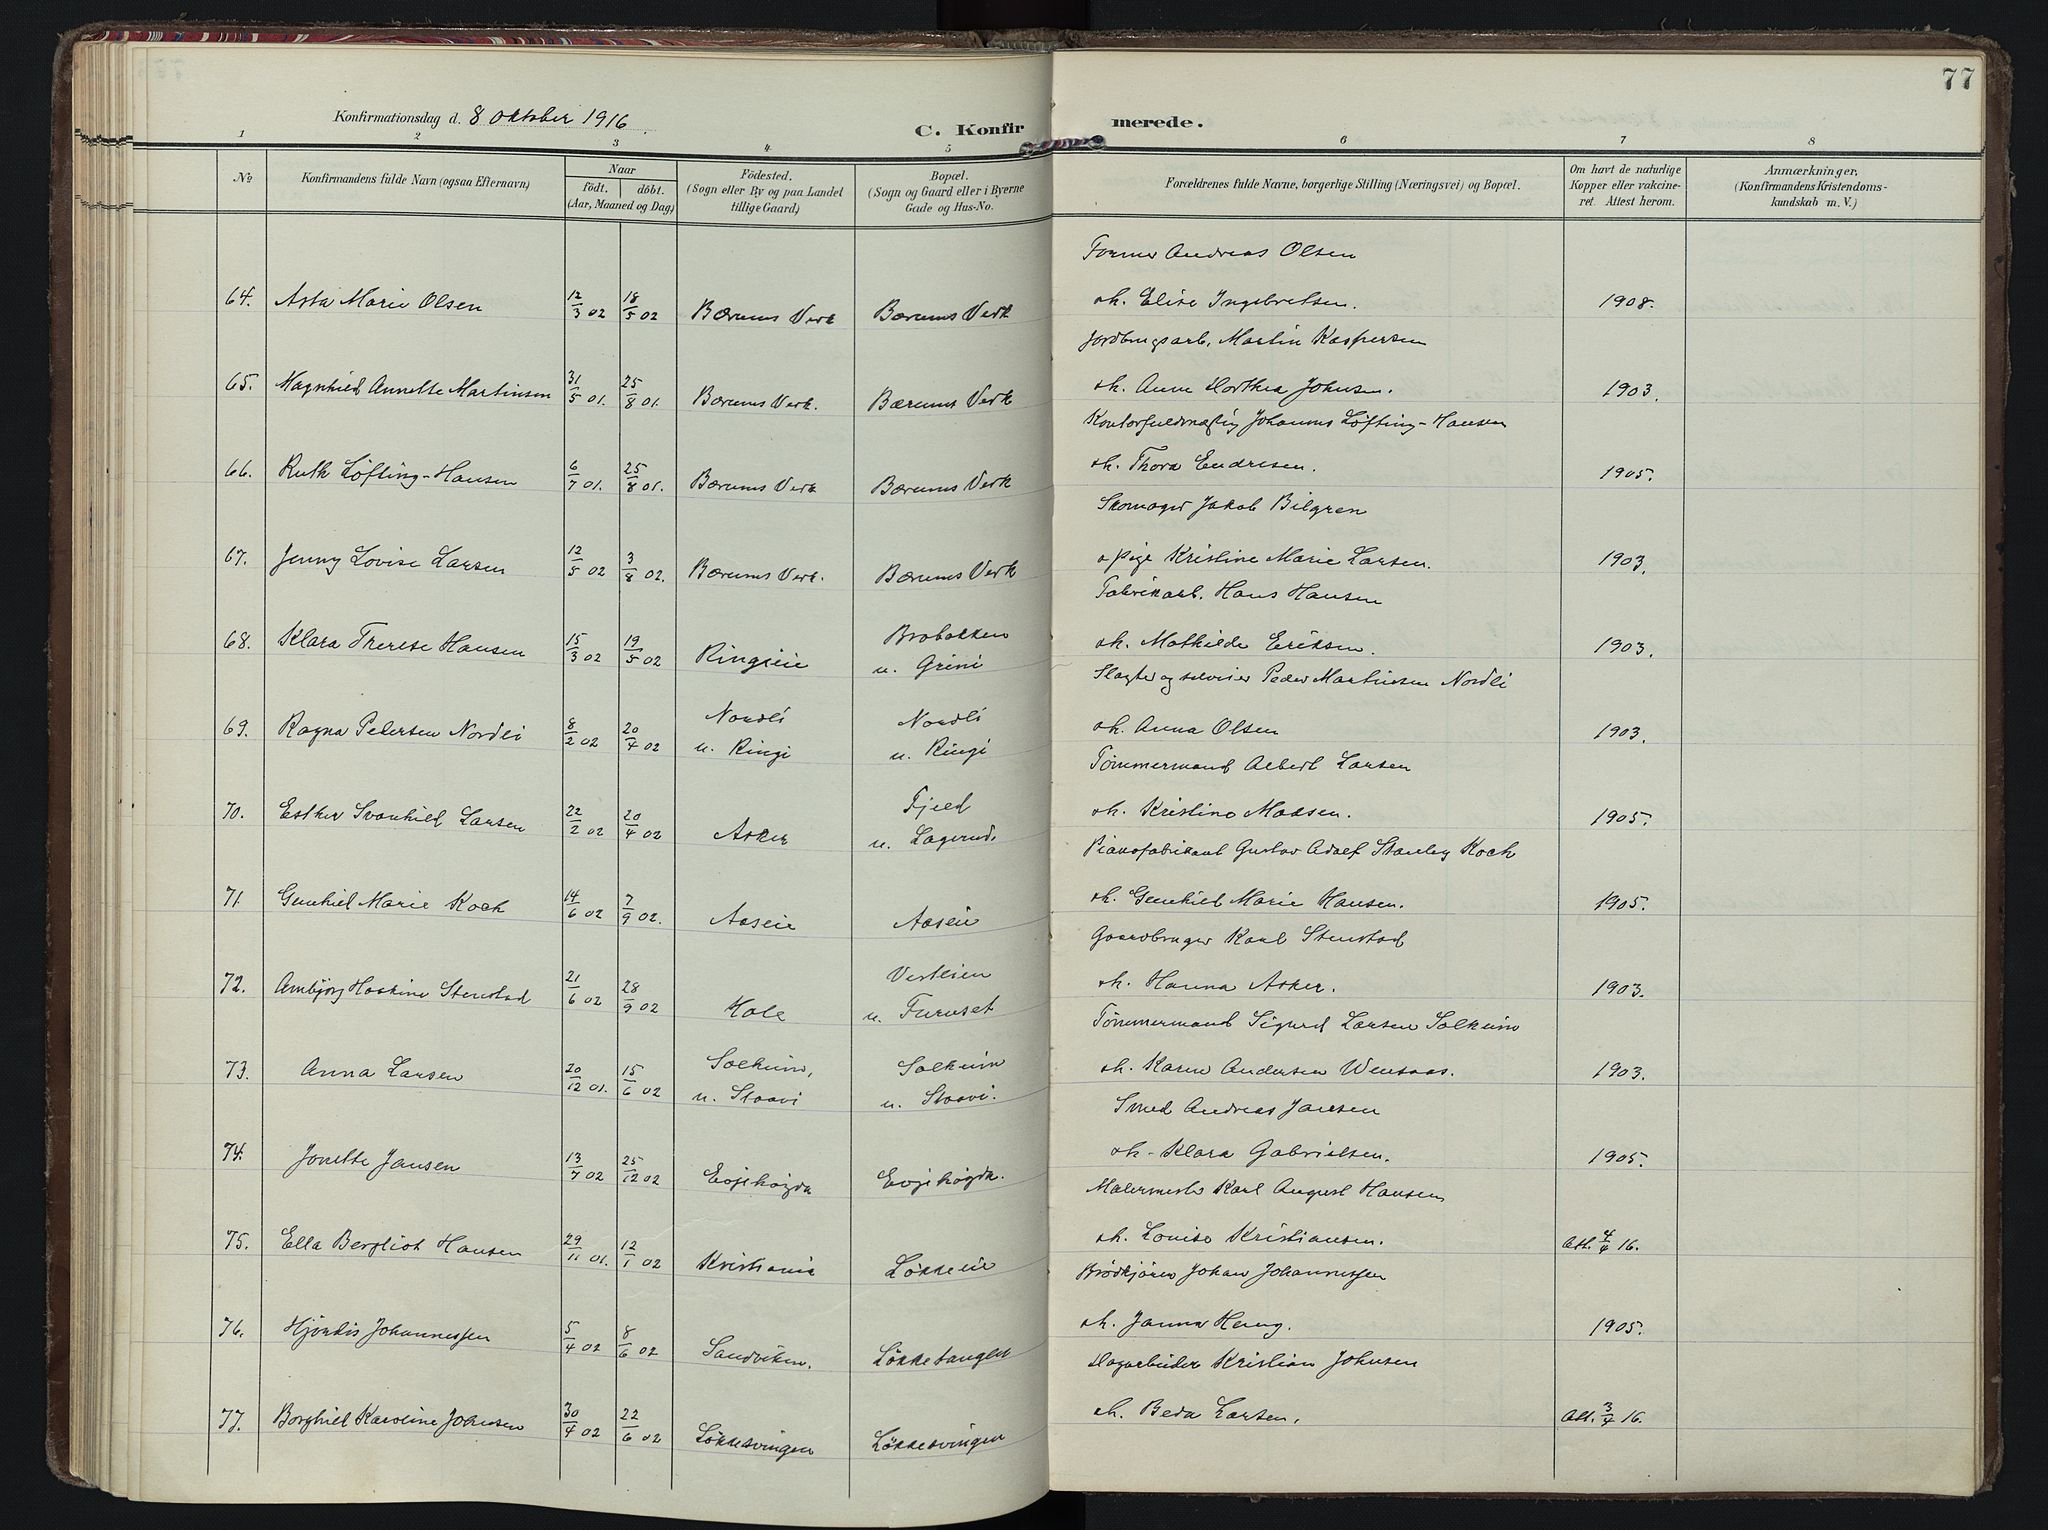 77
Konfirmationsdag d. 8 oktober 1916.
C. Konfirmerede.
1 2 3 4 5 6 7 8
No
Konfirmandens fulde Navn (ogsaa Efternavn)
Naar
födt. döbt.
(Aar, Maaned og Dag)
Födested.
(Sogn eller By og paa Landet
tillige Gaard)
Bopæl.
(Sogn og Gaard eller i Byerne
Gade og Hus-No.
Forældrenes fulde Navne, borgerlige Stilling (Næringsvei) og Bopæl.
Om havt de naturlige
Kopper eller vakcine-
ret. Attest herom.
Anmærkninger,
(Konfirmandens Kristendoms-
kundskab m. V.)
Former Andreas Olsen
64. Asta Marie Olsen 12/3 02 18/5 02 Bærums Verk Bærums Verk oh. Elise Ingebretsen. 1908.
Jordbrugsarb. Martin Kaspersen
65. Magnhild Annette Martinsen 31/5 01. 25/8 01. Bærums Verk. Bærums Verk oh. Anne Dorthea Johnsen. 1903.
Kontorfuldmægtig Johannes Løfting-Hansen
66. Ruth Løfting-Hansen 6/7 01. 25/8 01. Bærums Verk Bærums Verk oh. Thora Endresen. 1905.
Skomager Jakob Bilgren
67. Jenny Lovise Larsen 12/5 02 3/8 02. Bærums Verk. Bærums Verk o pige Kristine Marie Larsen. 1903.
Fabrikarb. Hans Hansen
68. Klara Therese Hansen 15/3 02 19/5 02 Ringieie Brobakken
u. Grini oh. Mathilde Eriksen. 1903.
Slagter og selveier Peder Martinsen Nordli
69. Ragna Pedersen Nordli 8/2 02 20/4 02 Nordli
u. Ringi Nordli
u. Ringi oh. Anna Olsen 1903.
Tömmermand Albert Larsen
70. Esther Svanhild Larsen 22/2 02 20/4 02 Asker Fjeld
u. Lagerud. oh. Kristine Madsen. 1905.
Pianofabrikant Gustav Adolf Stanley Koch
71. Gunhild Marie Koch 14/6 02 7/9 02. Aaseie Aaseie oh. Gunhild Marie Hansen. 1905.
Gaardbruger Karl Stenstad
72. Ambjörg Haakine Stenstad 21/6 02 28/9 02 Hole Vestlien
u. Furuset oh. Hanna Asker. 1903.
Tömmermand Sigurd Larsen Solheim
73. Anna Larsen 20/12 01. 15/6 02 Solheim,
u. Staavi Solheim
u. Staavi. oh. Karen Andersen Wensaas. 1903.
Smed Andreas Jansen
74. Jonette Jansen 13/7 02 25/12 02 Evjehögda Evjehögda. oh. Klara Gabrielsen. 1905.
Malermester Karl August Hansen
75. Ella Bergliot Hansen 29/11 01. 12/1 02 Kristiania Løkkeeie oh. Louise Kristiansen. Att. 4/4 16.
Brödkjörer Johan Johannessen
76. Hjördis Johannessen 5/4 02 8/6 02 Sandviken. Løkketangen oh. Janna Heng. 1905.
Dagarbeider Kristian Johnsen
77. Borghild Karoline Johnsen 30/4 02 22/6 02 Løkkesvingen Løkkesvingen oh. Beda Larsen. Att. 3/4 16.